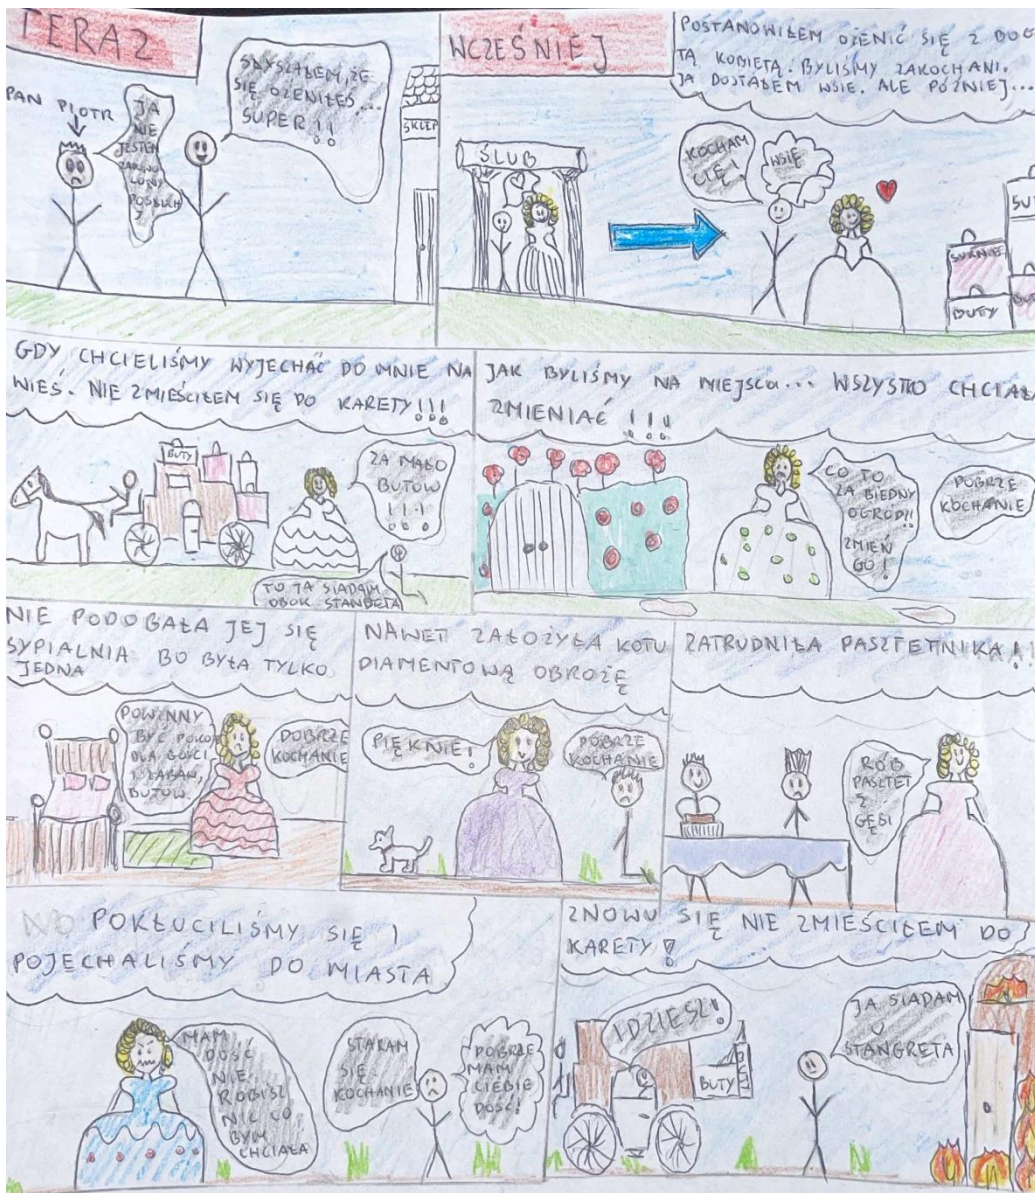 TERAZ
PAN PIOTR
JA
NIE
JESTEM
SŁYSZAŁEM, ŻE
SIĘ OŻENIŁEŚ...
SUPER!!
SKLEP
WCZEŚNIEJ
POSTANOWIŁEM OŻENIĆ SIĘ Z BOG
TĄ KOBIETĄ. BYLIŚMY ZAKOCHANI.
JA DOSTAŁEM WSIE. ALE PÓŹNIEJ...
ŚLUB
KOCHAM
CIĘ!
WSIĘ
SU
SUKNIE
BUTY
GDY CHCIELIŚMY WYJECHAĆ DO MNIE NA
WIEŚ. NIE ZMIEŚCIŁEM SIĘ DO KARETY!!!
BUTY
ZA MAŁO
BUTÓW
!!!
TO JA SIADAM
OBOK STANGRETA
JAK BYLIŚMY NA MIEJSCU... WSZYSTKO CHCIAŁA
ZMIENIAĆ!!!
CO TO
ZA BIEDNY
OGRÓD!!
ZMIEŃ
GO!
DOBRZE
KOCHANIE
NIE PODOBAŁA JEJ SIĘ
SYPIALNIA BO BYŁA TYLKO
JEDNA
POWINNY
BYĆ POKOJ
DLA GOŚCI
I ZABAW,
BUTÓW.
DOBRZE
KOCHANIE
NAWET ZAŁOŻYŁA KOTU
DIAMENTOWĄ OBROŻĘ
PIĘKNIE!
DOBRZE
KOCHANIE
ZATRUDNIŁA PASZTETNIKA!!
RÓB
PASZTET
Z
GĘSI
NO POKŁUCILIŚMY SIĘ I
POJECHALIŚMY DO MIASTA
MAM
DOŚĆ
NIE
ROBISZ
NIC CO
BYM
CHCIAŁA
STARAM
SIĘ
KOCHANIE
DOBRZE
MAM
CIEBIE
DOŚĆ!
ZNOWU SIĘ NIE ZMIEŚCIŁEM DO
KARETY!
IDZIESZ!
BUTY
JA SIADAM
U
STANGRETA